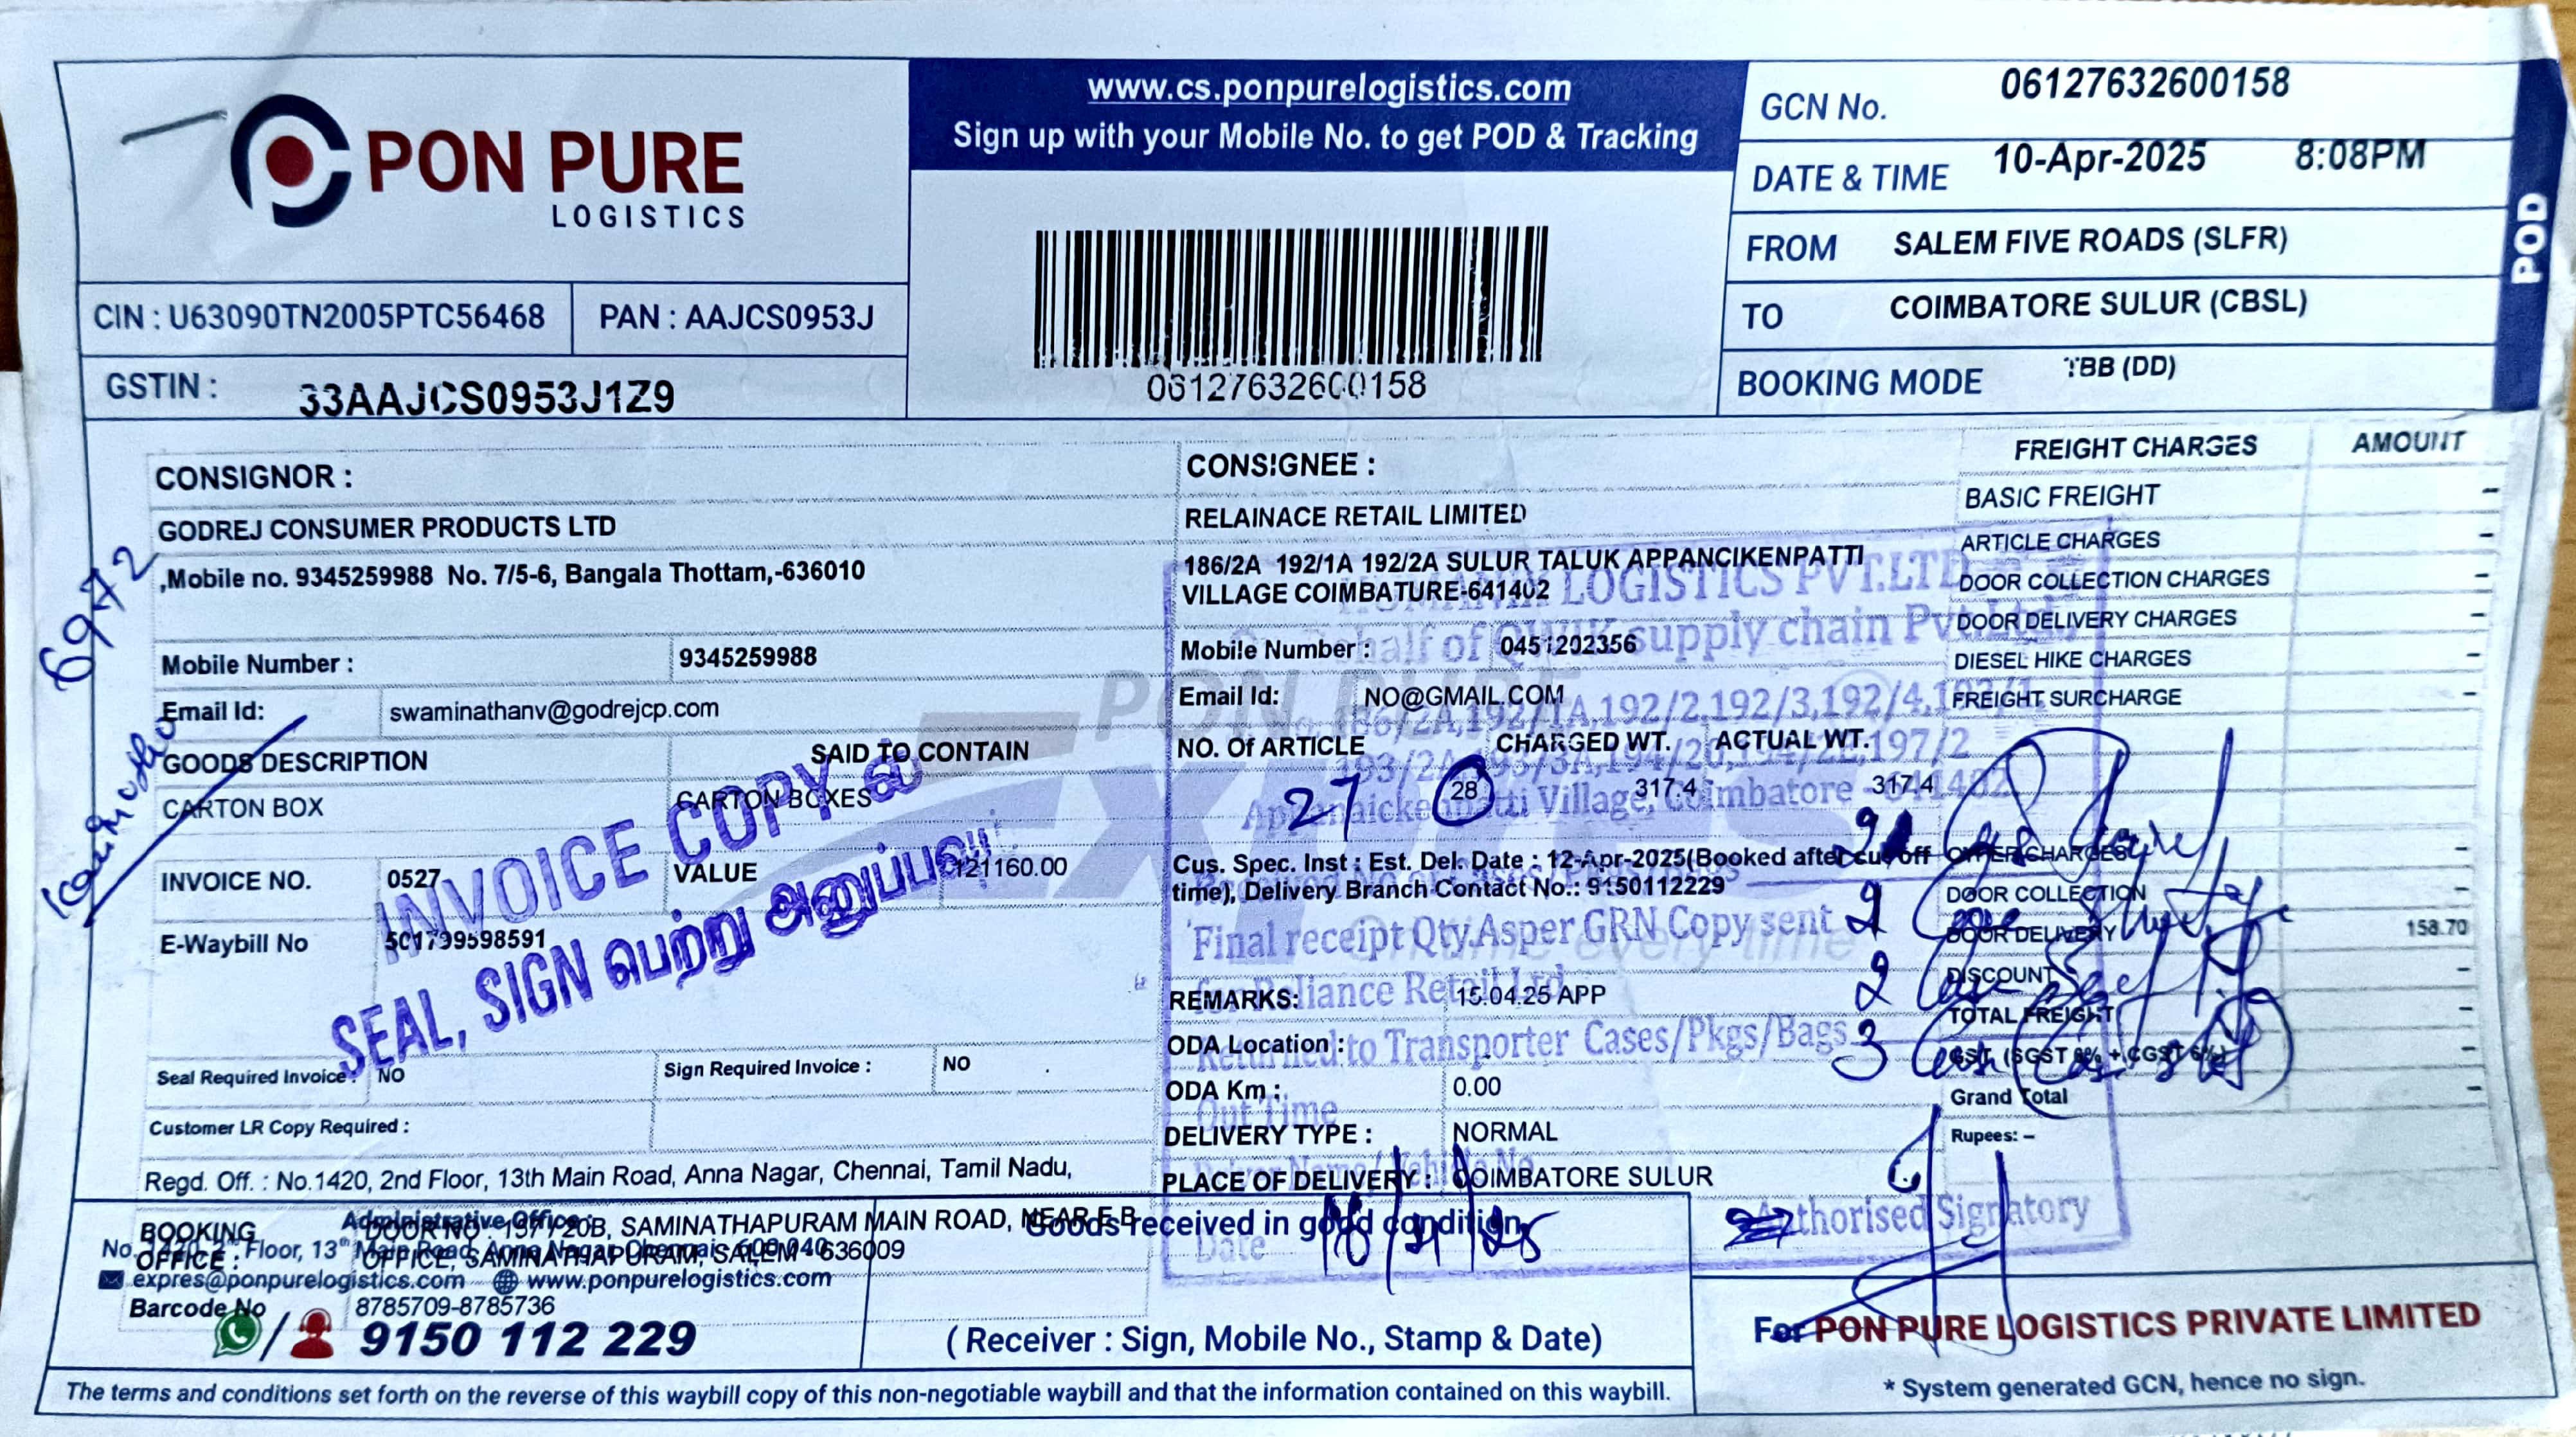 PON PURE
LOGISTICS
www.cs.ponpurelogistics.com
Sign up with your Mobile No. to get POD & Tracking
06127632600158
GCN No. 06127632600158
DATE & TIME 10-Apr-2025 8:08PM
FROM SALEM FIVE ROADS (SLFR)
TO COIMBATORE SULUR (CBSL)
BOOKING MODE TBB (DD)
POD
CIN : U63090TN2005PTC56468 PAN : AAJCS0953J
GSTIN : 33AAJCS0953J1Z9
6972
CONSIGNOR :
GODREJ CONSUMER PRODUCTS LTD
,Mobile no. 9345259988 No. 7/5-6, Bangala Thottam,-636010
Mobile Number : 9345259988
Email Id: swaminathanv@godrejcp.com
GOODS DESCRIPTION SAID TO CONTAIN
CARTON BOX CARTON BOXES
INVOICE NO. 0527 VALUE 121160.00
E-Waybill No 501799598591
INVOICE COPY ல்
SEAL, SIGN பெற்று அனுப்பவு
Seal Required Invoice : NO Sign Required Invoice : NO
Customer LR Copy Required :
Regd. Off. : No.1420, 2nd Floor, 13th Main Road, Anna Nagar, Chennai, Tamil Nadu,
CONSIGNEE :
RELAINACE RETAIL LIMITED
186/2A 192/1A 192/2A SULUR TALUK APPANCIKENPATTI
VILLAGE COIMBATURE-641402
LOGISTICS PVT.LTD
behalf of QWIK supply chain Pvt.Ltd
Mobile Number : 0451202356
Email Id: NO@GMAIL.COM
186/2A,192/1A,192/2,192/3,192/4,
NO. Of ARTICLE CHARGED WT. ACTUAL WT.
197/2
27 28 317.4 317.4
Village, Coimbatore
Cus. Spec. Inst : Est. Del. Date : 12-Apr-2025(Booked after cutoff
time), Delivery Branch Contact No.: 9150112229
Final receipt Qty.Asper GRN Copy sent
for Reliance Retail Ltd
REMARKS: 15.04.25 APP
Returned to Transporter Cases/Pkgs/Bags
ODA Location :
ODA Km : 0.00
Out Time
DELIVERY TYPE : NORMAL
PLACE OF DELIVERY : COIMBATORE SULUR
FREIGHT CHARGES AMOUNT
BASIC FREIGHT -
ARTICLE CHARGES -
DOOR COLLECTION CHARGES -
DOOR DELIVERY CHARGES -
DIESEL HIKE CHARGES -
FREIGHT SURCHARGE -
OTHER CHARGES -
DOOR COLLECTION -
DOOR DELIVERY 158.70
DISCOUNT -
TOTAL FREIGHT -
GST (SGST 6% + CGST 6%) -
Grand Total -
Rupees: –
Authorised Signatory
BOOKING OFFICE : DOOR NO : 157 / 20B, SAMINATHAPURAM MAIN ROAD, NEAR E.B
OFFICE, SAMINATHAPURAM, SALEM - 636009
Administrative Office :
No. 1420, 2nd Floor, 13th Main Road, Anna Nagar, Chennai - 600 040
expres@ponpurelogistics.com www.ponpurelogistics.com
Barcode No 8785709-8785736
9150 112 229
Goods received in good condition
Date
( Receiver : Sign, Mobile No., Stamp & Date)
For PON PURE LOGISTICS PRIVATE LIMITED
* System generated GCN, hence no sign.
The terms and conditions set forth on the reverse of this waybill copy of this non-negotiable waybill and that the information contained on this waybill.